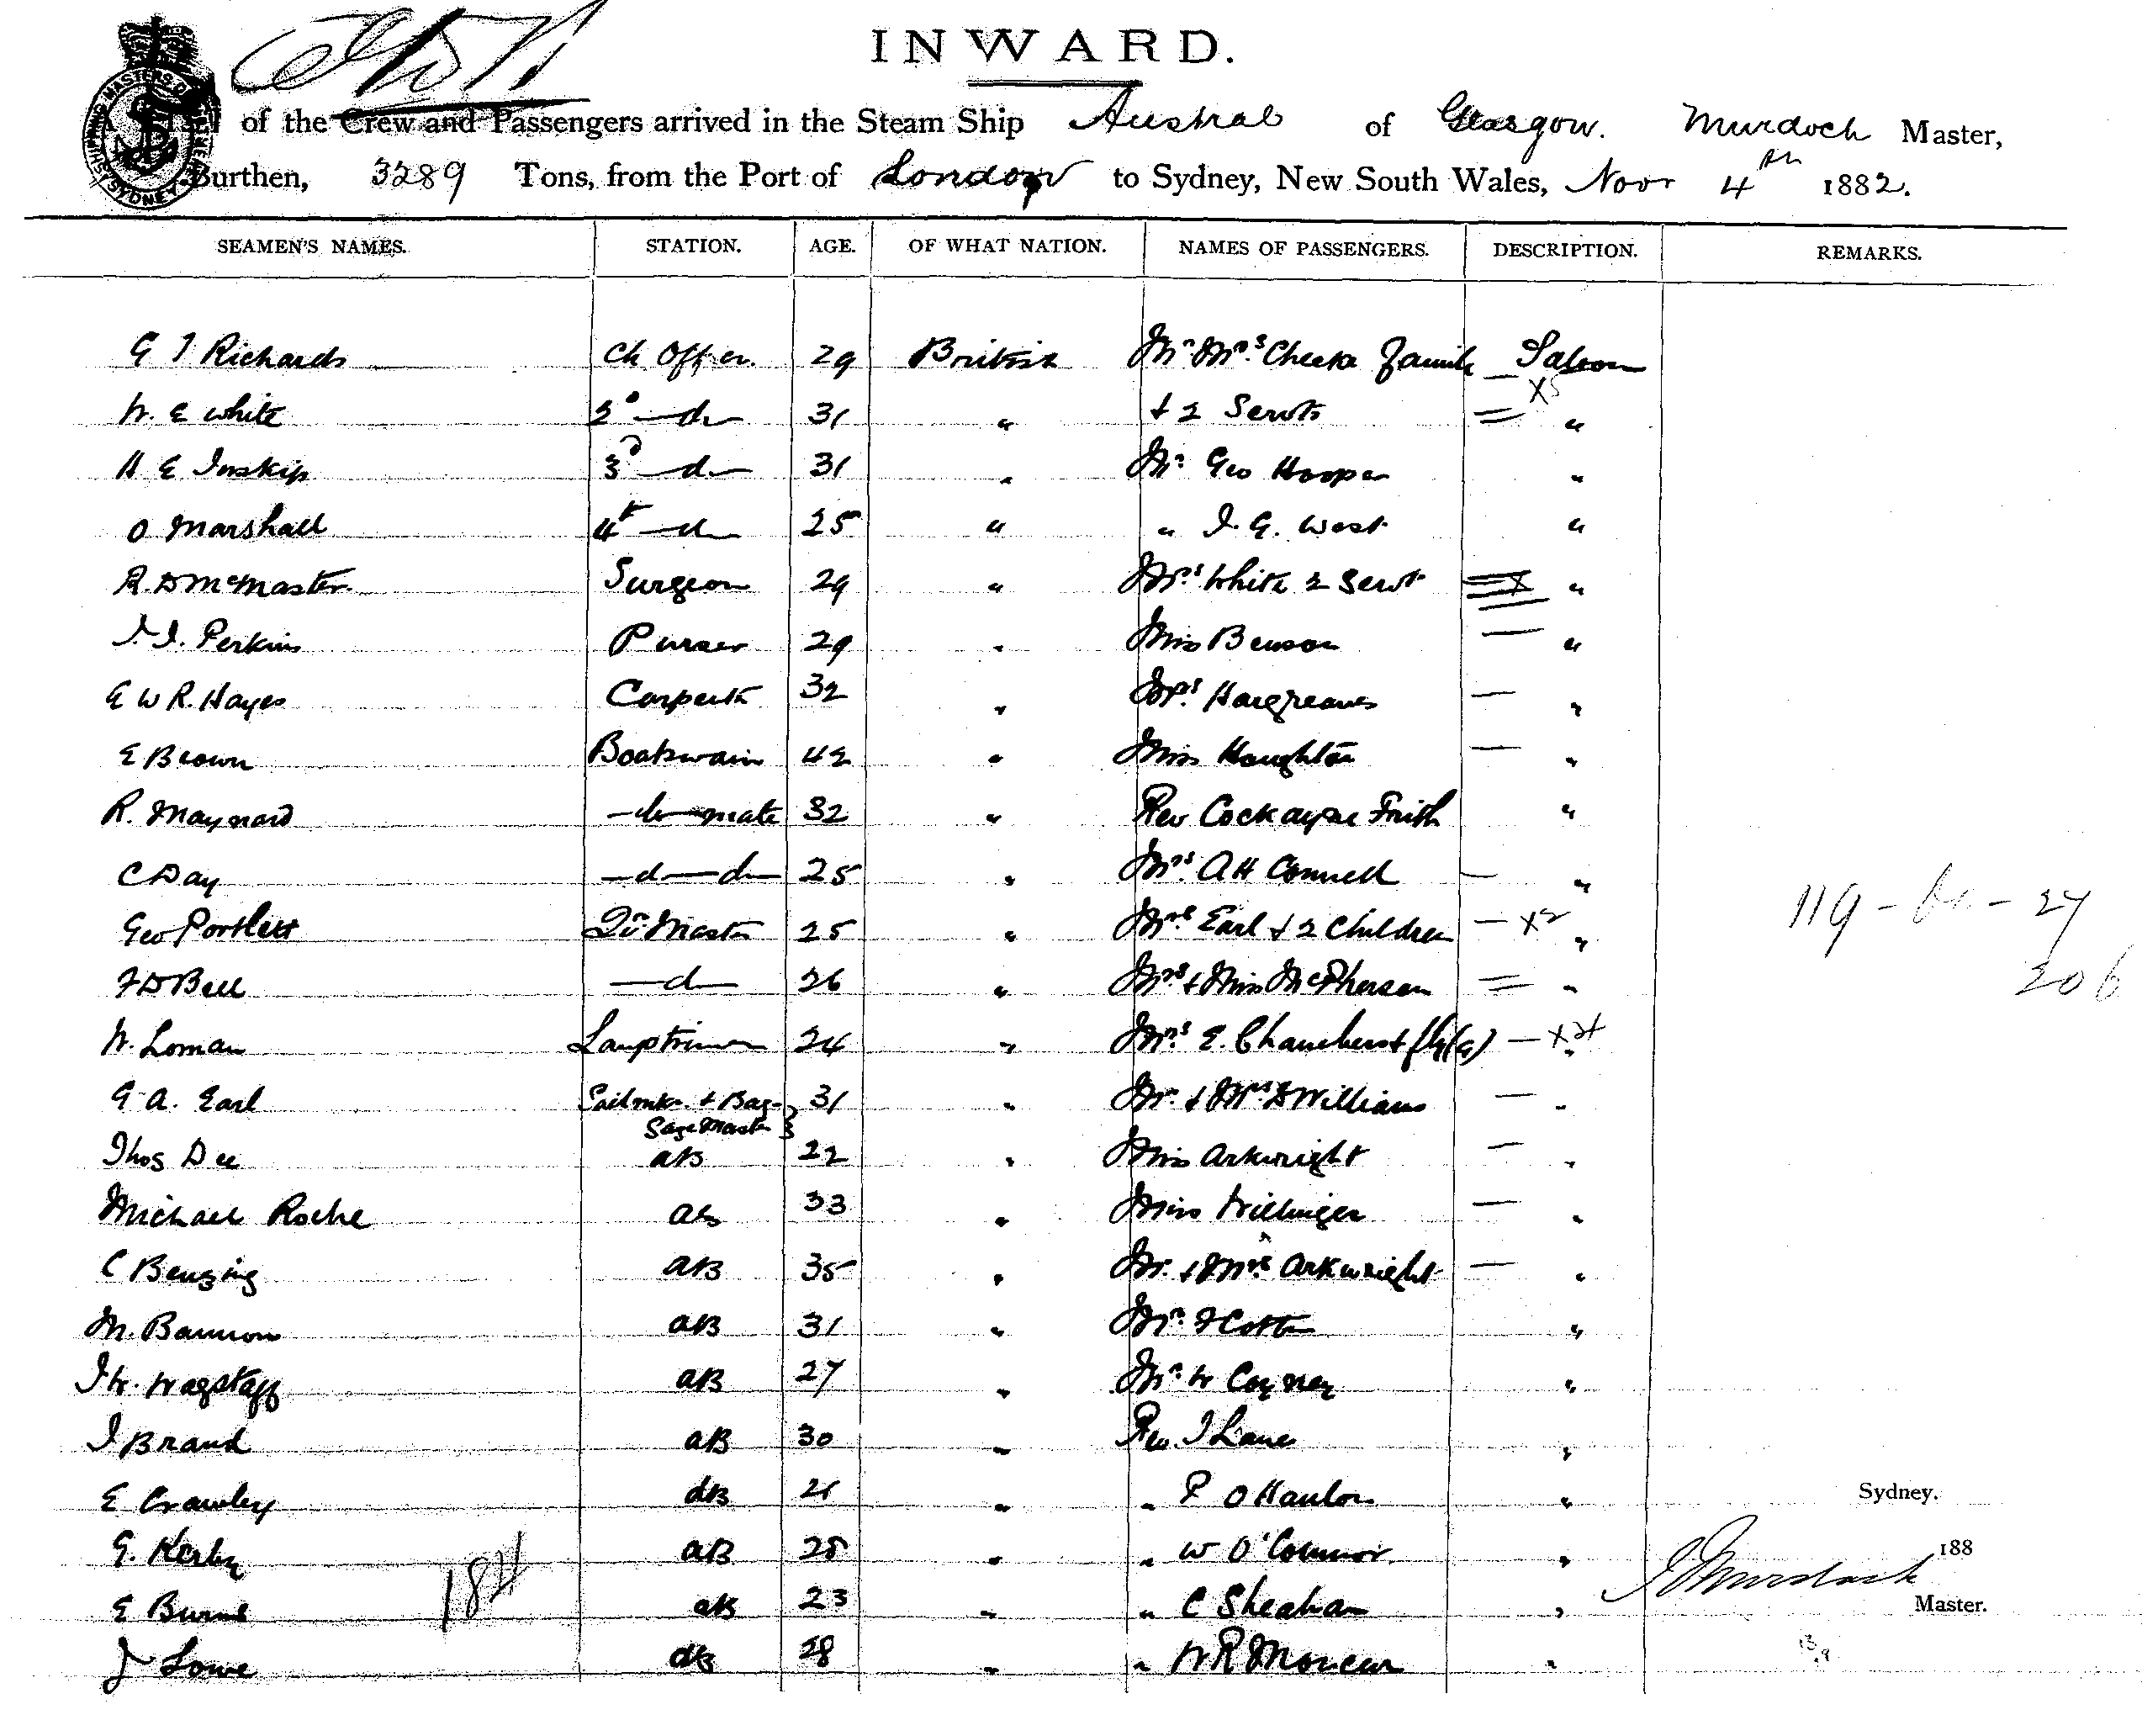 INWARD.
of the Crew and Passengers arrived in the Steam Ship Austral of Glasgow. Murdoch Master,
Burthen, 3289 Tons, from the Port of London to Sydney, New South Wales, Novr 4th 1882.
SEAMEN'S NAMES. STATION. AGE. OF WHAT NATION. NAMES OF PASSENGERS. DESCRIPTION. REMARKS.
G T Richards Ch Officer 29 British Mr. Mrs. Cheeke Family Saloon
W. E White 2d —do— 31 " + 2 Servts "
H E Inskip 3d —do— 31 " Mr. Geo Hooper "
O Marshall 4th —do— 25 " " J. G. West "
R. D McMaster Surgeon 29 " Mrs. White 2 Servt "
J. J. Perkins Purser 29 " Miss Benson "
E W R. Hayes Carpentr 32 " Mrs. Hargreaves "
E Brown Boatswain 42 " Miss Houghton "
R. Maynard —do— mate 32 " Rev Cockayne Frith "
C Day —do— —do— 25 " Mrs. A H Connell "
Geo Portlett Qr Master 25 " Mrs Earl + 2 Children — x2 " 119 - - 27
F D Bell —do— 26 " Mrs + Miss McPherson " 206
W. Loman Lamptrimmer 24 " Mrs E. Chambers + fly "
G A. Earl Sailmkr. + Bag- 31 " Mr. + Mrs D Williams "
gage Master
Thos Dee AB 22 " Miss Arkwright "
Michael Roche AB 33 " Miss "
C Benzing AB 35 " Mr. + Mrs Arkwright "
M. Bannon AB 31 " Mr. F Cotten "
J W. Wagstaff AB 27 " Mr. W Coyney "
J Brand AB 30 " Rev. J Lane "
E Crawley AB 21 " " P O Hanlon " Sydney.
G. Kerby AB 28 " " W O'Connor " 188
E Burns AB 23 " " C Sheahan " J Murdoch Master.
J Lowe AB 28 " " W R Moncur "